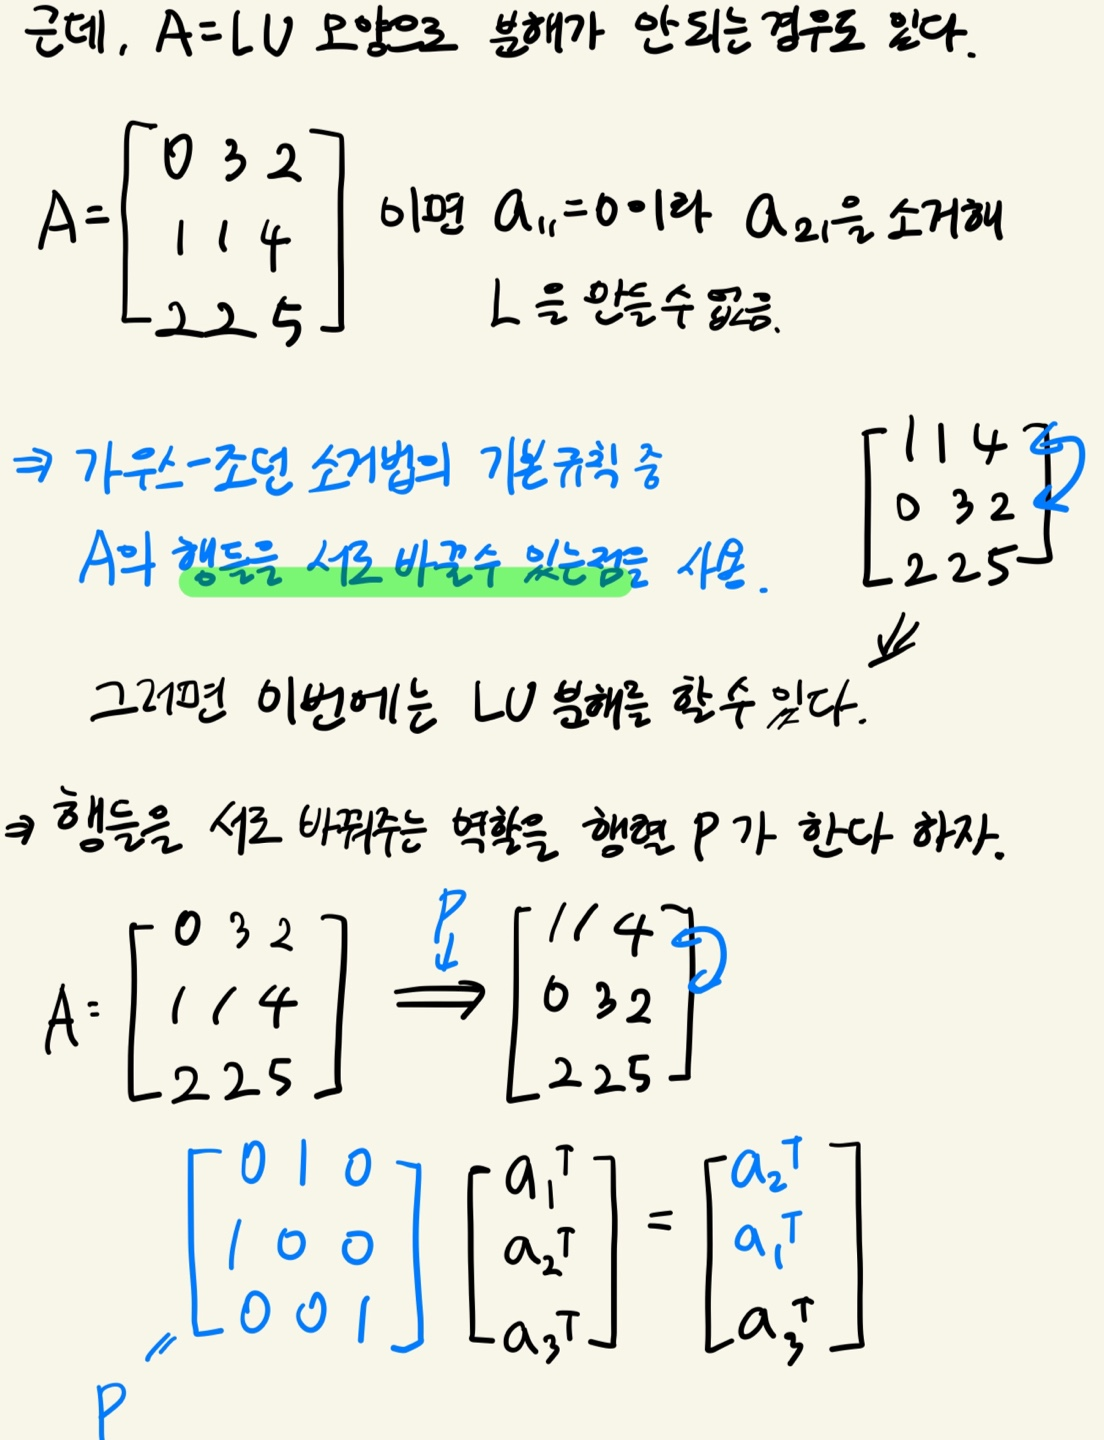 근데, A=LU 모양으로 분해가 안되는 경우도 있다.
A= [0 3 2
1 1 4
2 2 5] 이면 a₁₁=0이라 a₂₁을 소거해
L을 만들 수 없음.
⇒ 가우스-조던 소거법의 기본규칙 중
A의 행들을 서로 바꿀수 있는점을 사용.
[1 1 4
0 3 2
2 2 5]
그러면 이번에는 LU 분해를 할 수 있다.
⇒ 행들을 서로 바꿔주는 역할을 행렬 P가 한다 하자.
P
↓
A= [0 3 2
1 1 4
2 2 5] ⇒ [1 1 4
0 3 2
2 2 5]
[0 1 0
1 0 0
0 0 1] [a₁ᵀ
a₂ᵀ
a₃ᵀ] = [a₂ᵀ
a₁ᵀ
a₃ᵀ]
P